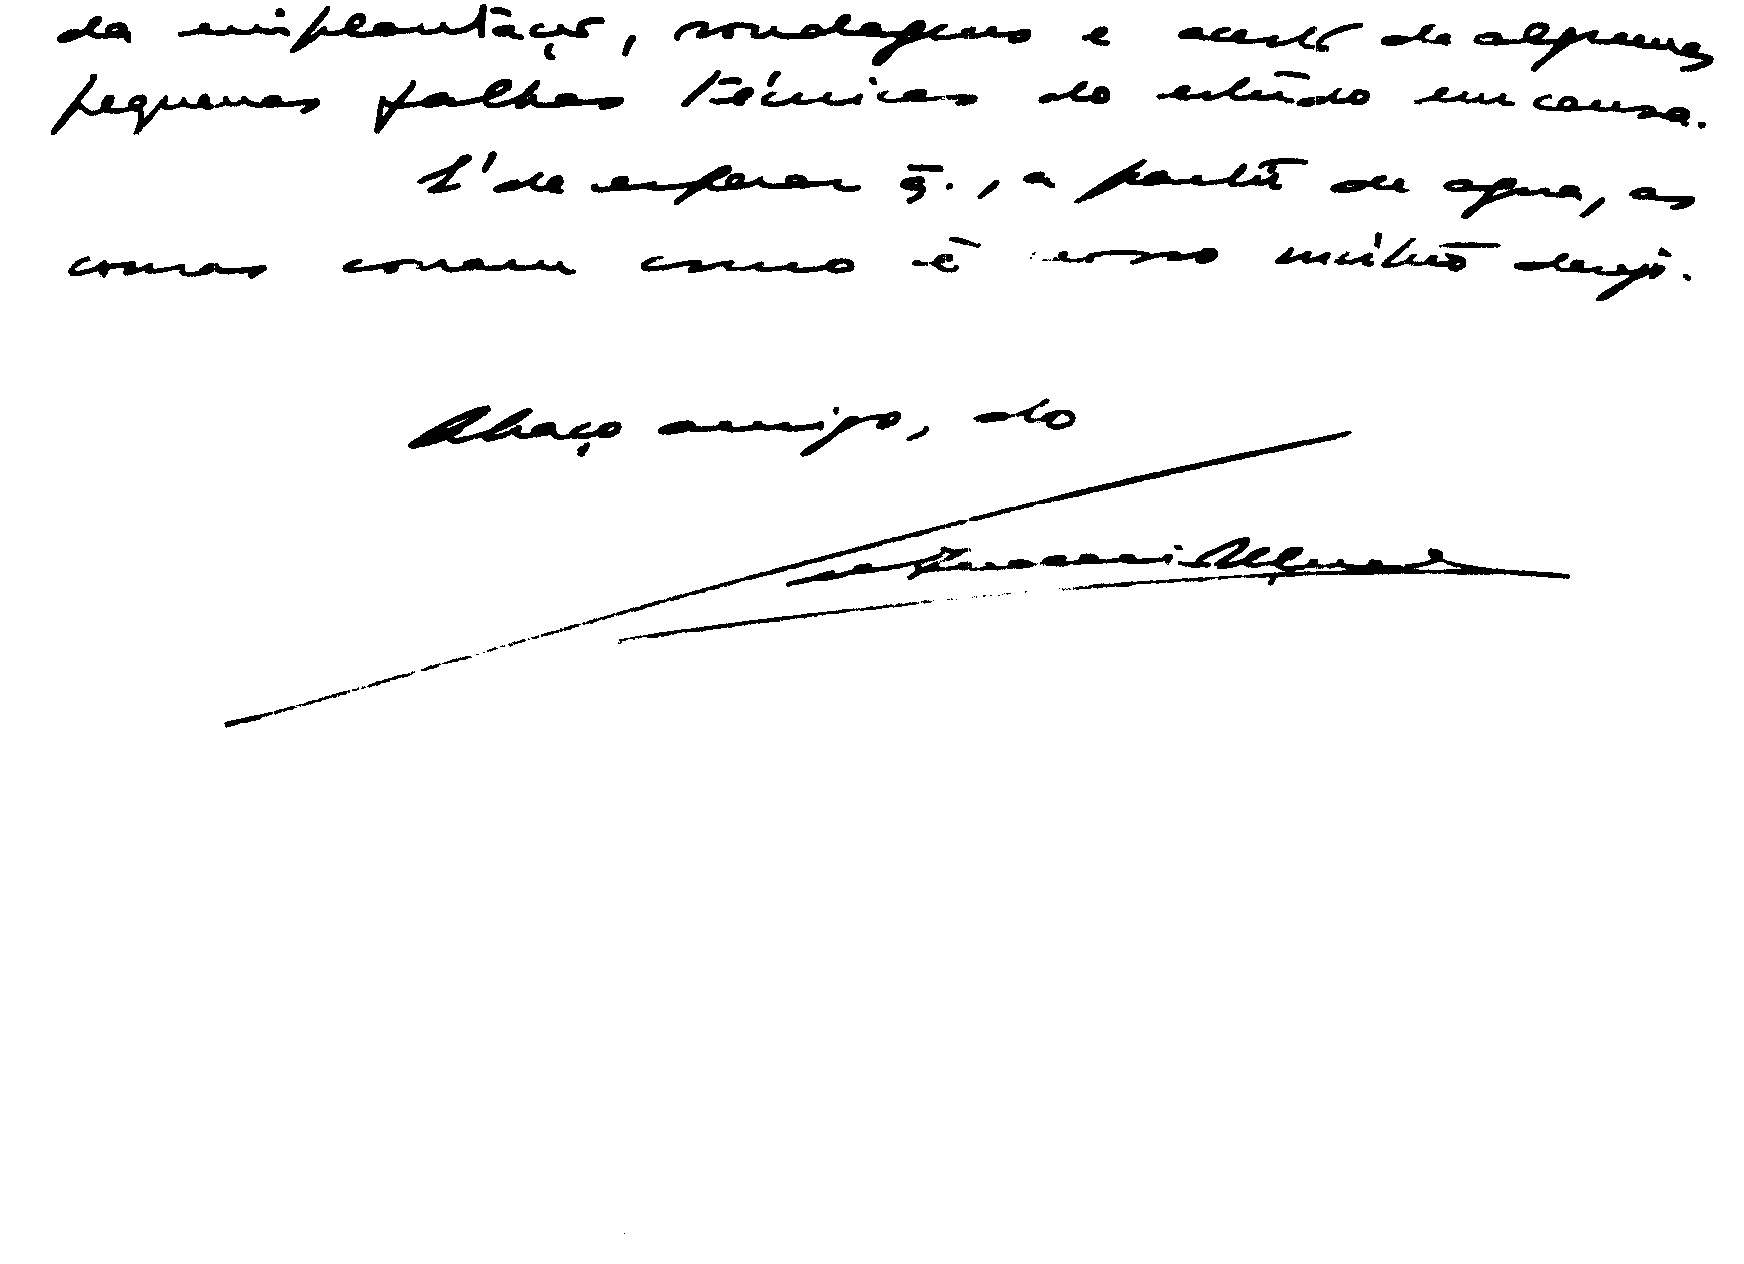 da implantação, sondagens e acerto de algumas
pequenas falhas técnicas do estudo em causa.
É de esperar q., a partir de agora, as
coisas corram como é nosso mútuo desejo.
Abraço amigo, do